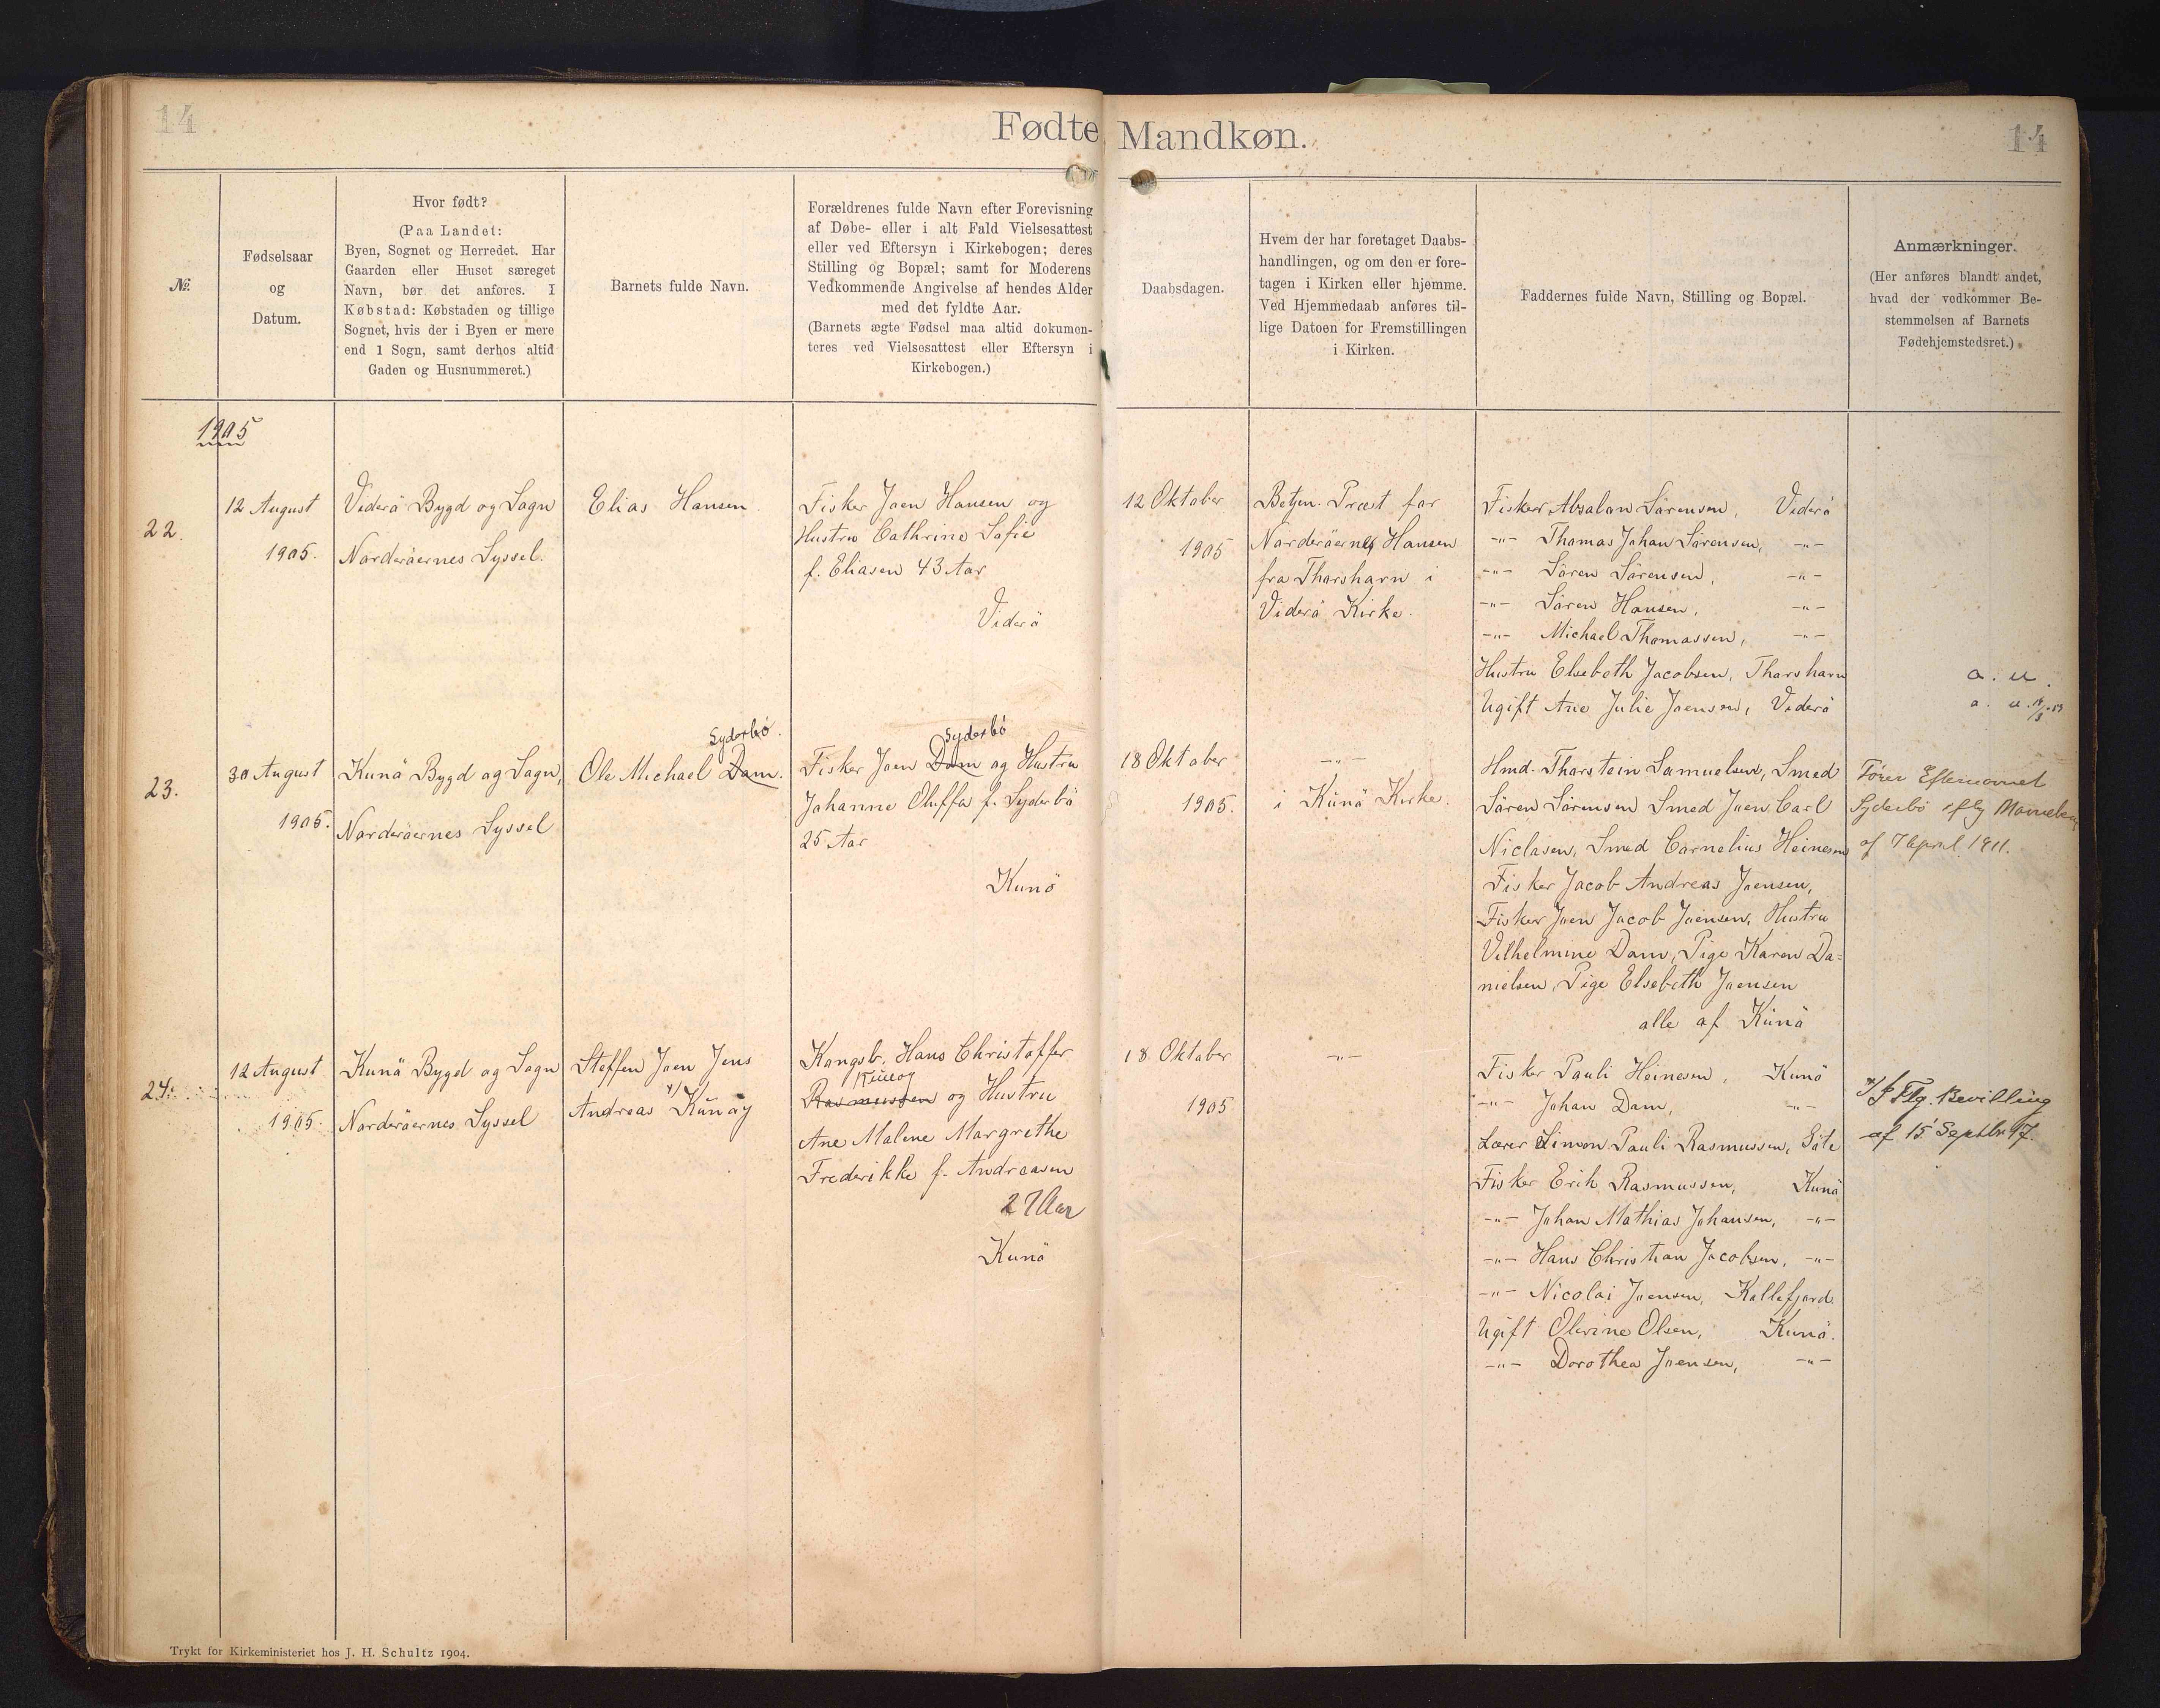 14
Fødte Mandkøn.
14
№.
Fødselsaar
og
Datum.
Hvor født?
(Paa Landet:
Byen, Sognet og Herredet. Har
Gaarden eller Huset særeget
Navn, bør det anføres. I
Købstad: Købstaden og tillige
Sognet, hvis der i Byen er mere
end 1 Sogn, samt derhos altid
Gaden og Husnummeret.)
Barnets fulde Navn.
Forældrenes fulde Navn efter Forevisning
af Døbe- eller i alt Fald Vielsesattest
eller ved Eftersyn i Kirkebogen; deres
Stilling og Bopæl; samt for Moderens
Vedkommende Angivelse af hendes Alder
med det fyldte Aar.
(Barnets ægte Fødsel maa altid dokumen-
teres ved Vielsesattest eller Eftersyn i
Kirkebogen.)
Daabsdagen.
Hvem der har foretaget Daabs-
handlingen, og om den er fore-
tagen i Kirken eller hjemme.
Ved Hjemmedaab anføres til-
lige Datoen for Fremstillingen
i Kirken.
Faddernes fulde Navn, Stilling og Bopæl.
Anmærkninger.
(Her anføres blandt andet,
hvad der vedkommer Be-
stemmelsen af Barnets
Fødehjemstedsret.)
1905
22.
12 August
1905.
Viderö Bygd og Sogn
Norderöernes Syssel.
Elias Hansen
Fisker Joen Hansen og
Hustru Cathrine Sofie
f. Eliasen 43 Aar
Viderö
12 Oktober
1905
Betjen. Præst for
Norderöernes Hansen
fra Thorshavn i
Viderö Kirke.
Fisker Absalon Sörensen, Viderö
-"- Thomas Johan Sörensen, -"-
-"- Sören Sörensen, -"-
-"- Sören Hansen, -"-
-"- Michael Thomassen, -"-
Hustru Elsebeth Jacobsen, Thorshavn
Ugift Ane Julie Joensen, Viderö
a. u.
a. u.
23.
30 August
1905.
Kunö Bygd og Sogn,
Norderöernes Syssel
Syderbö.
Ole Michael Dam.
Syderbö
Fisker Joen Dam og Hustru
Johanne Oluffa f. Syderbö
25 Aar
Kunö
18 Oktober
1905.
-"-
i Kunö Kirke.
Hmd. Thorstein Samuelsen, Smed
Sören Sörensen Smed Joen Carl
Niclasen, Smed Cornelius Heinesen
Fisker Jacob Andreas Joensen,
Fisker Joen Jacob Joensen, Hustru
Vilhelmine Dam, Pige Karen Da=
nielsen, Pige Elsebeth Joensen
alle af Kunö
Fører Efternavnet
Syderbö iflg Navnebev
af 7 April 1911.
24.
12 August
1905.
Kunö Bygd og Sogn
Norderöernes Syssel
Steffen Joen Jens
Andreas x) Kúnoy
Kongsb. Hans Christoffer
Kúnoy
Rasmussen og Hustru
Ane Malene Margrethe
Frederikke f. Andreasen
27 Aar
Kunö
18 Oktober
1905
-"-
Fisker Pauli Heinesen, Kunö
-"- Johan Dam, -"-
Lærer Simon Pauli Rasmussen, Gøte
Fisker Erik Rasmussen, Kunö
-"- Johan Mathias Johansen, -"-
-"- Hans Christian Jacobsen, -"-
-"- Nicolai Joensen, Kollefjord.
Ugift Olevine Olsen, Kunö.
-"- Dorothea Joensen, -"-
x) Flg. Bevilling
af 15 Septbr 17.
Trykt for Kirkeministeriet hos J. H. Schultz 1904.